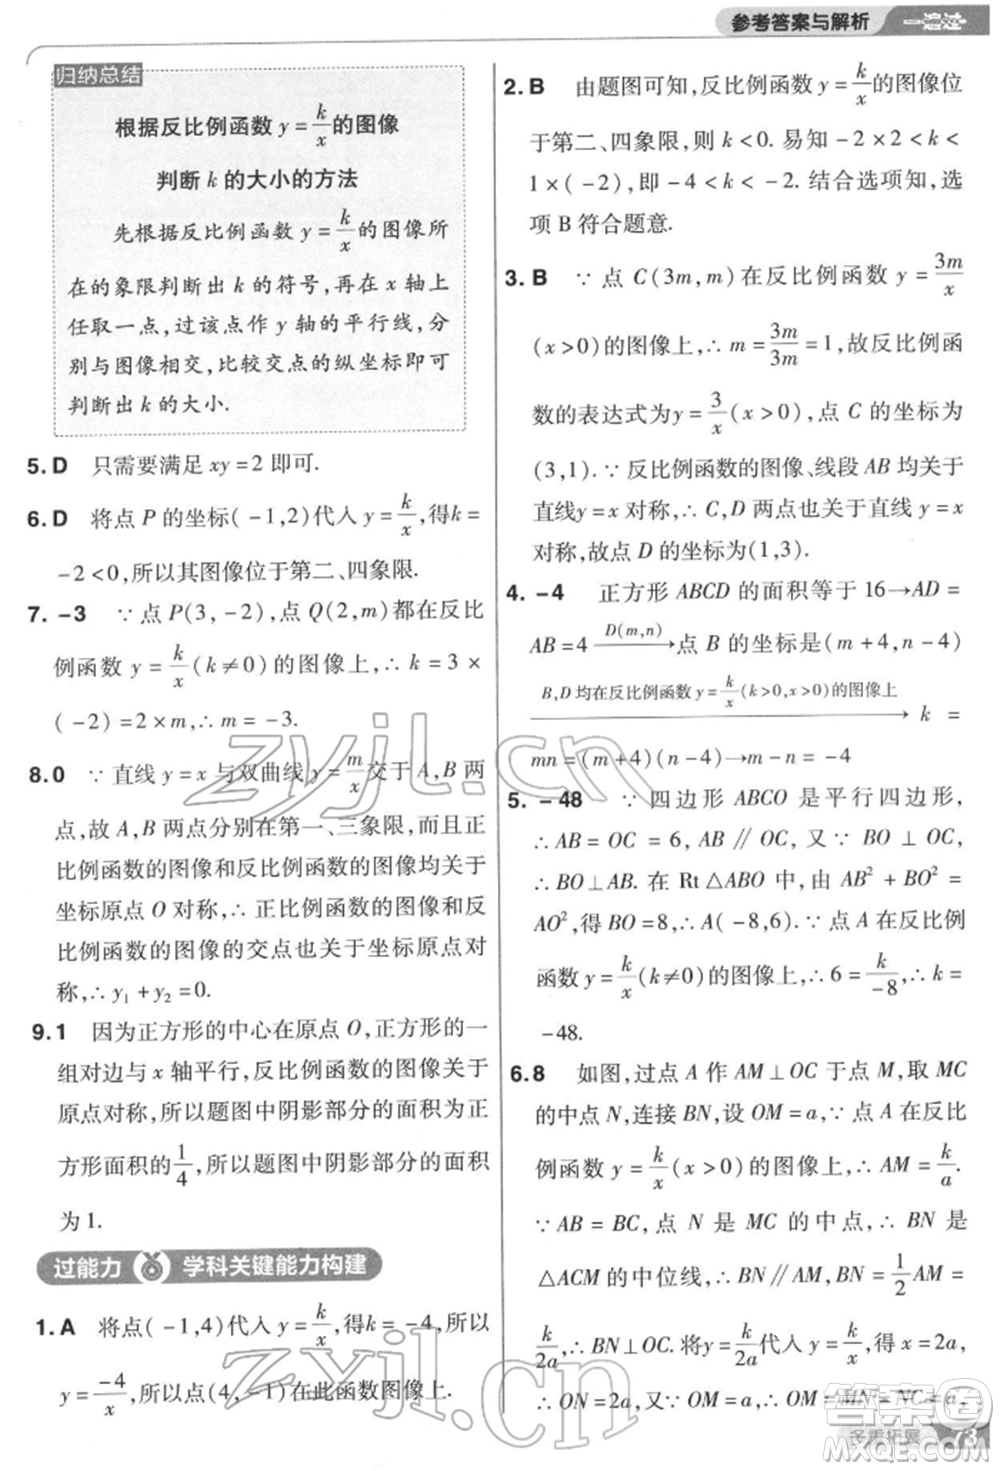 参考答案与解析 一遍过
归纳总结
根据反比例函数 y=k/x 的图像
判断 k 的大小的方法
先根据反比例函数 y=k/x 的图像所
在的象限判断出 k 的符号,再在 x 轴上
任取一点,过该点作 y 轴的平行线,分
别与图像相交,比较交点的纵坐标即可
判断出 k 的大小.
5.D 只需要满足 xy=2 即可.
6.D 将点 P 的坐标(-1,2)代入 y=k/x,得k=
-2<0,所以其图像位于第二、四象限.
7.-3 ∵点 P(3,-2),点 Q(2,m)都在反比
例函数 y=k/x(k≠0)的图像上,∴k=3×
(-2)=2×m,∴m=-3.
8.0 ∵直线 y=x 与双曲线 y=m/x交于 A,B 两
点,故 A,B 两点分别在第一、三象限,而且正
比例函数的图像和反比例函数的图像均关于
坐标原点 O 对称,∴正比例函数的图像和反
比例函数的图像的交点也关于坐标原点对
称,∴y₁+y₂=0.
9.1 因为正方形的中心在原点 O,正方形的一
组对边与 x 轴平行,反比例函数的图像关于
原点对称,所以题图中阴影部分的面积为正
方形面积的1/4,所以题图中阴影部分的面积
为 1.
过能力 学科关键能力构建
1.A 将点(-1,4)代入 y=k/x,得k=-4,所以
y=-4/x,所以点(4,-1)在此函数图像上.
2.B 由题图可知,反比例函数 y=k/x的图像位
于第二、四象限,则 k<0. 易知 -2×2<k<
1×(-2),即 -4<k<-2. 结合选项知,选
项 B 符合题意.
3.B ∵点 C(3m,m)在反比例函数 y=3m/x
(x>0)的图像上,∴m=3m/3m=1,故反比例函
数的表达式为y=3/x(x>0),点 C 的坐标为
(3,1).∵反比例函数的图像、线段 AB 均关于
直线y=x 对称,∴C,D 两点也关于直线 y=x
对称,故点 D 的坐标为(1,3).
4.-4 正方形 ABCD 的面积等于 16→AD=
AB=4 D(m,n)→点 B 的坐标是(m+4,n-4)
B,D 均在反比例函数 y=k/x(k>0,x>0)的图像上→k=
mn=(m+4)(n-4)→m-n=-4
5.-48 ∵四边形 ABCO 是平行四边形,
∴AB=OC=6,AB∥OC,又∵BO⊥OC,
∴BO⊥AB. 在 Rt△ABO 中,由 AB²+BO²=
AO²,得 BO=8,∴A(-8,6).∵点 A 在反比例
函数 y=k/x(k≠0)的图像上,∴6=k/-8,∴k=
-48.
6.8 如图,过点 A 作 AM⊥OC 于点 M,取 MC
的中点 N,连接 BN,设 OM=a,∵点 A 在反比
例函数 y=k/x(x>0)的图像上,∴AM=k/a.
∵AB=BC,点 N 是 MC 的中点,∴BN 是
△ACM 的中位线,∴BN∥AM,BN=1/2AM=
k/2a,∴BN⊥OC. 将y=k/2a代入y=k/x,得 x=2a,
∴ON=2a,又∵OM=a,∴OM=MN=NC=a,
多重拓展 73
zyjl.cn
zyjl.cn
答案圈
MXQE.COM